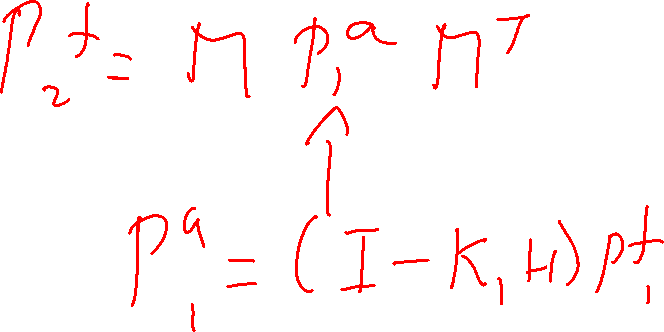 P₂ᶠ = M P₁ᵃ Mᵀ
↑
P₁ᵃ = (I − K₁H) P₁ᶠ